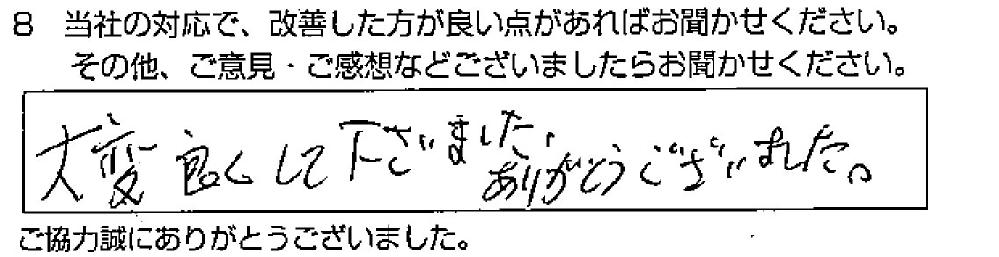 8 当社の対応で、改善した方が良い点があればお聞かせください。
その他、ご意見・ご感想などございましたらお聞かせください。
大変良くして下さいました、
ありがとうございました。
ご協力誠にありがとうございました。